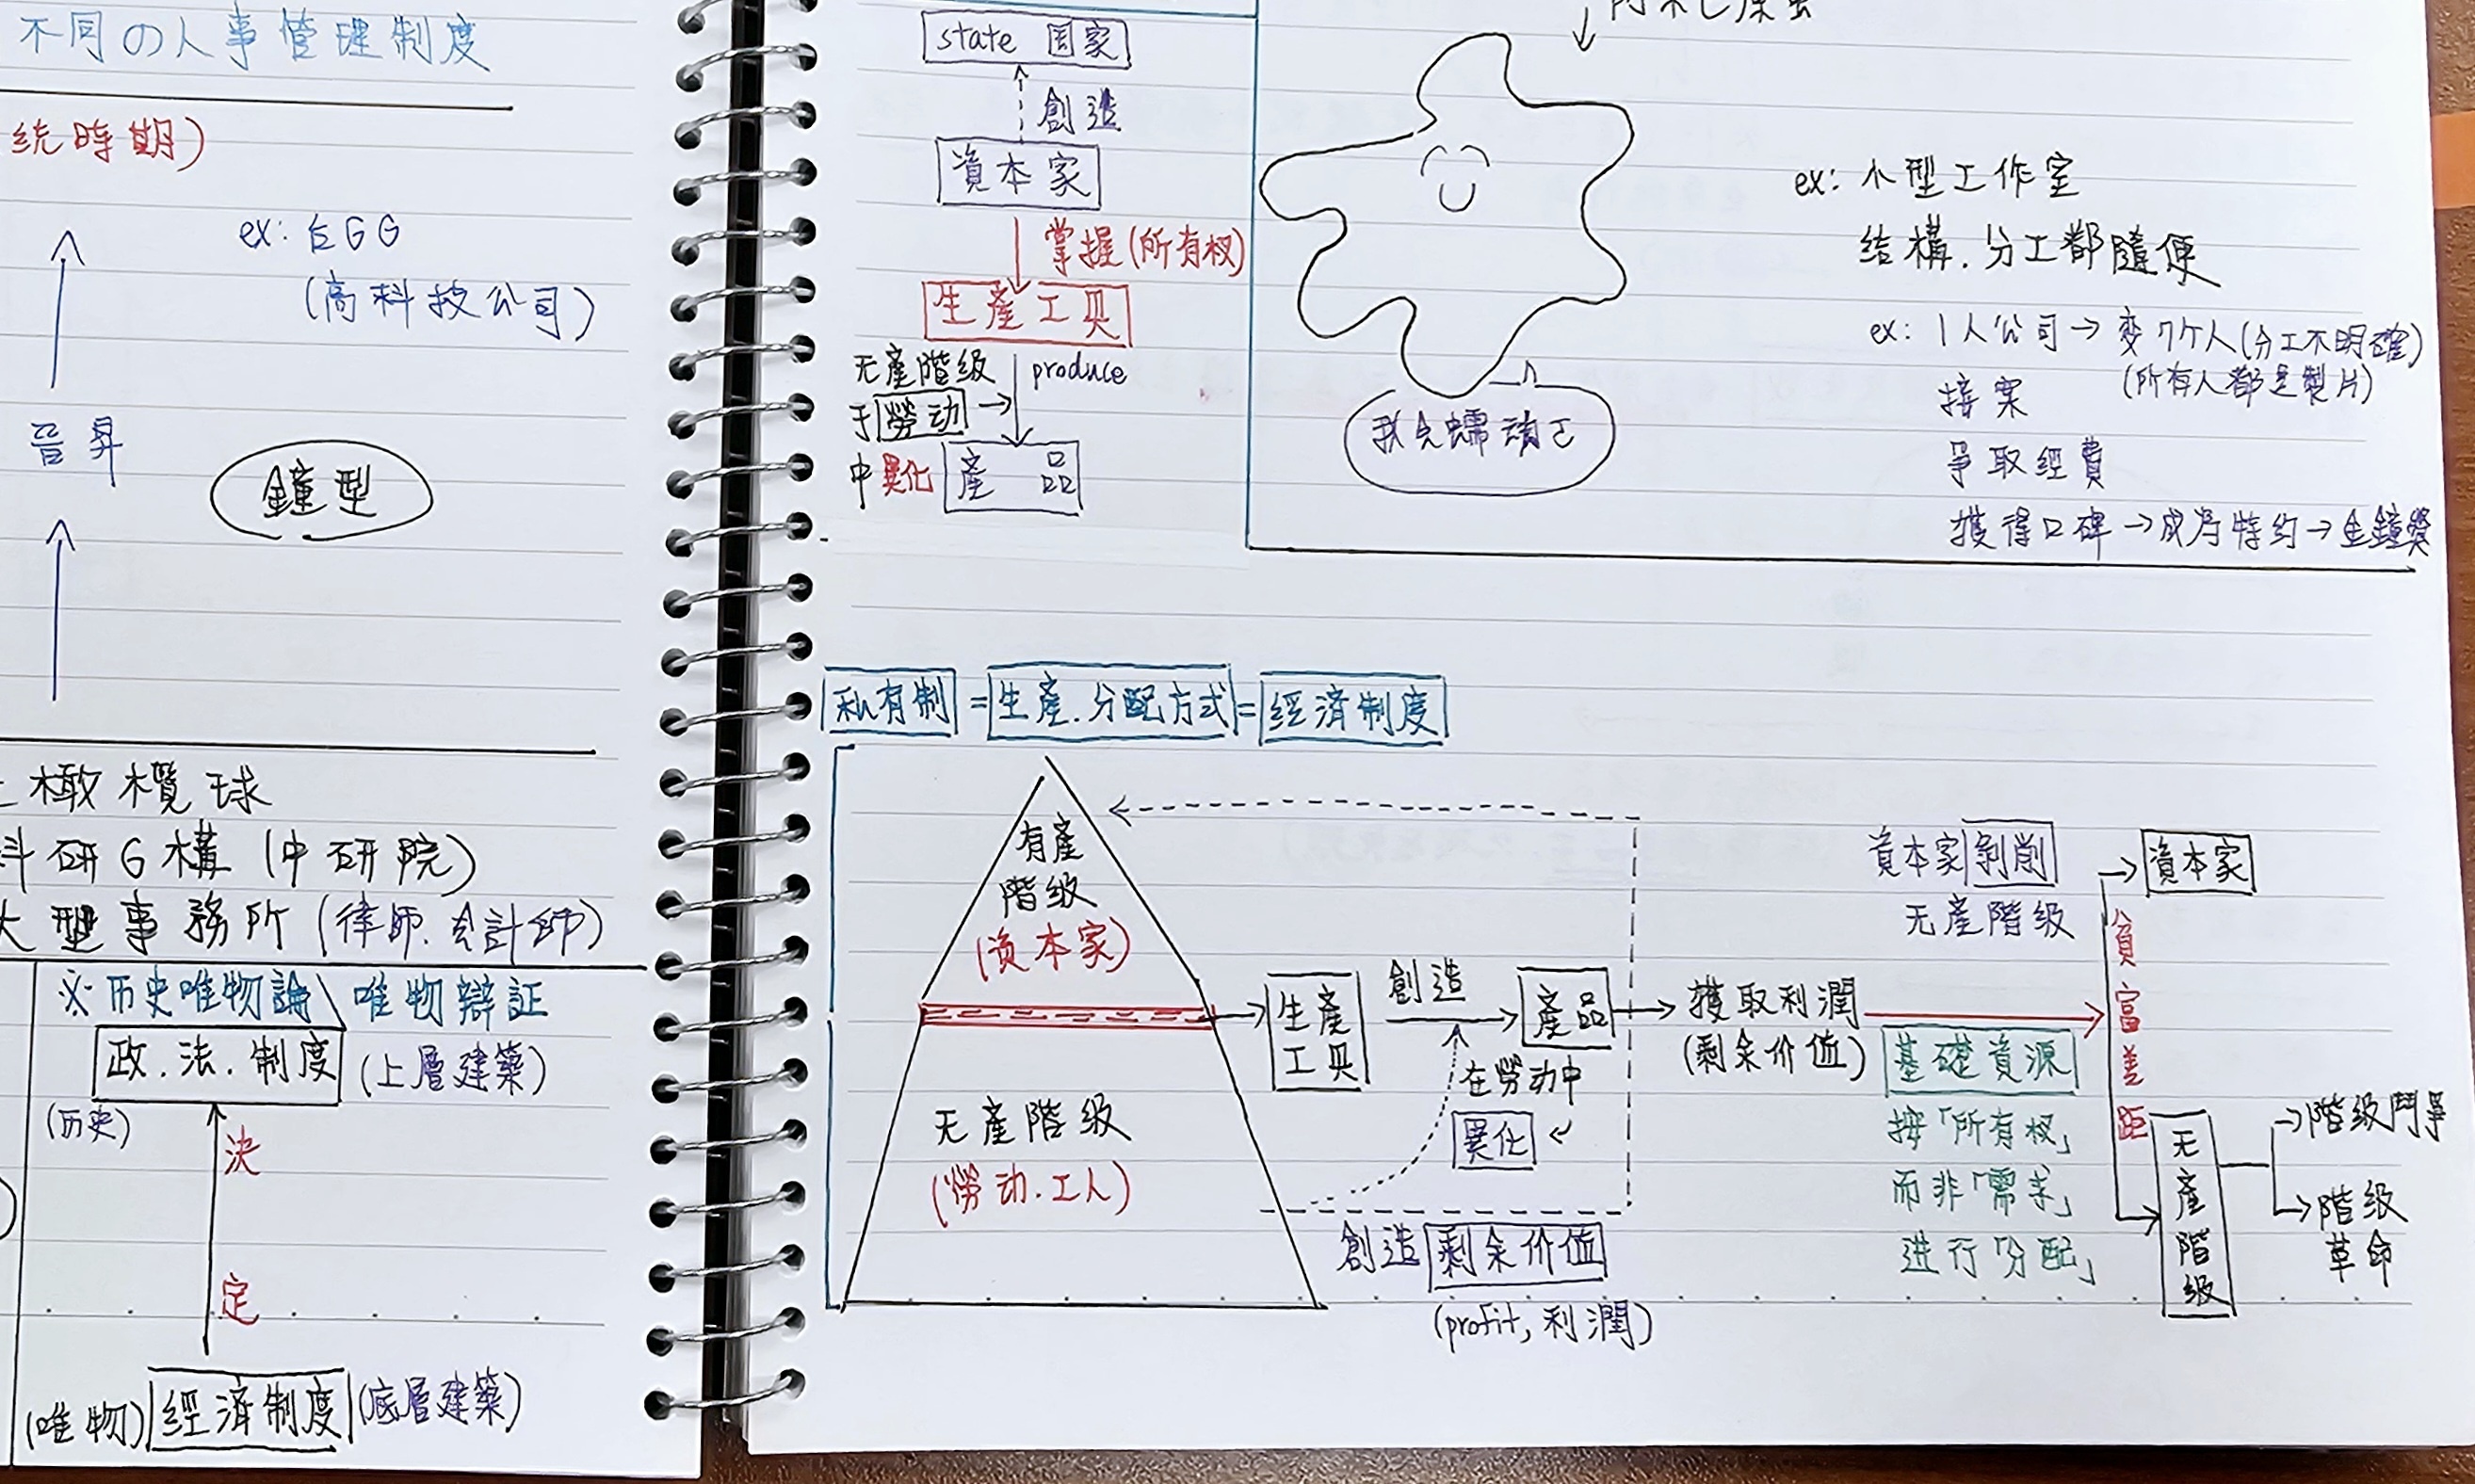 不同の人事管理制度
統時期)
ex: 台GG
(高科技公司)
晉昇
鐘型
橄欖球
科研G構 (中研院)
大型事務所 (律師.会計師)
※历史唯物論\唯物辯証
政.法.制度 (上層建築)
(历史)
決
定
(唯物) 經済制度 (底層建築)
state 国家
創造
資本家
掌握(所有权)
生產工具
无產階級
produce
于勞动
中異化
產品
ex: 小型工作室
结構.分工都隨便
ex: 1人公司→变7个人(分工不明確)
(所有人都是製片)
接案
爭取經費
獲得口碑→成为特约→金鐘獎
私有制=生產.分配方式=經済制度
有產
階级
(资本家)
无產階级
(勞动.工人)
生產
工具
創造
產品
在勞动中
異化
創造 剩余价值
(profit, 利潤)
獲取利潤
(剩余价值)
資本家剝削
无產階级
基礎資源
按「所有权」
而非「需求」
进行「分配」
貧富差距
資本家
无產階级
階级鬥爭
階级
革命